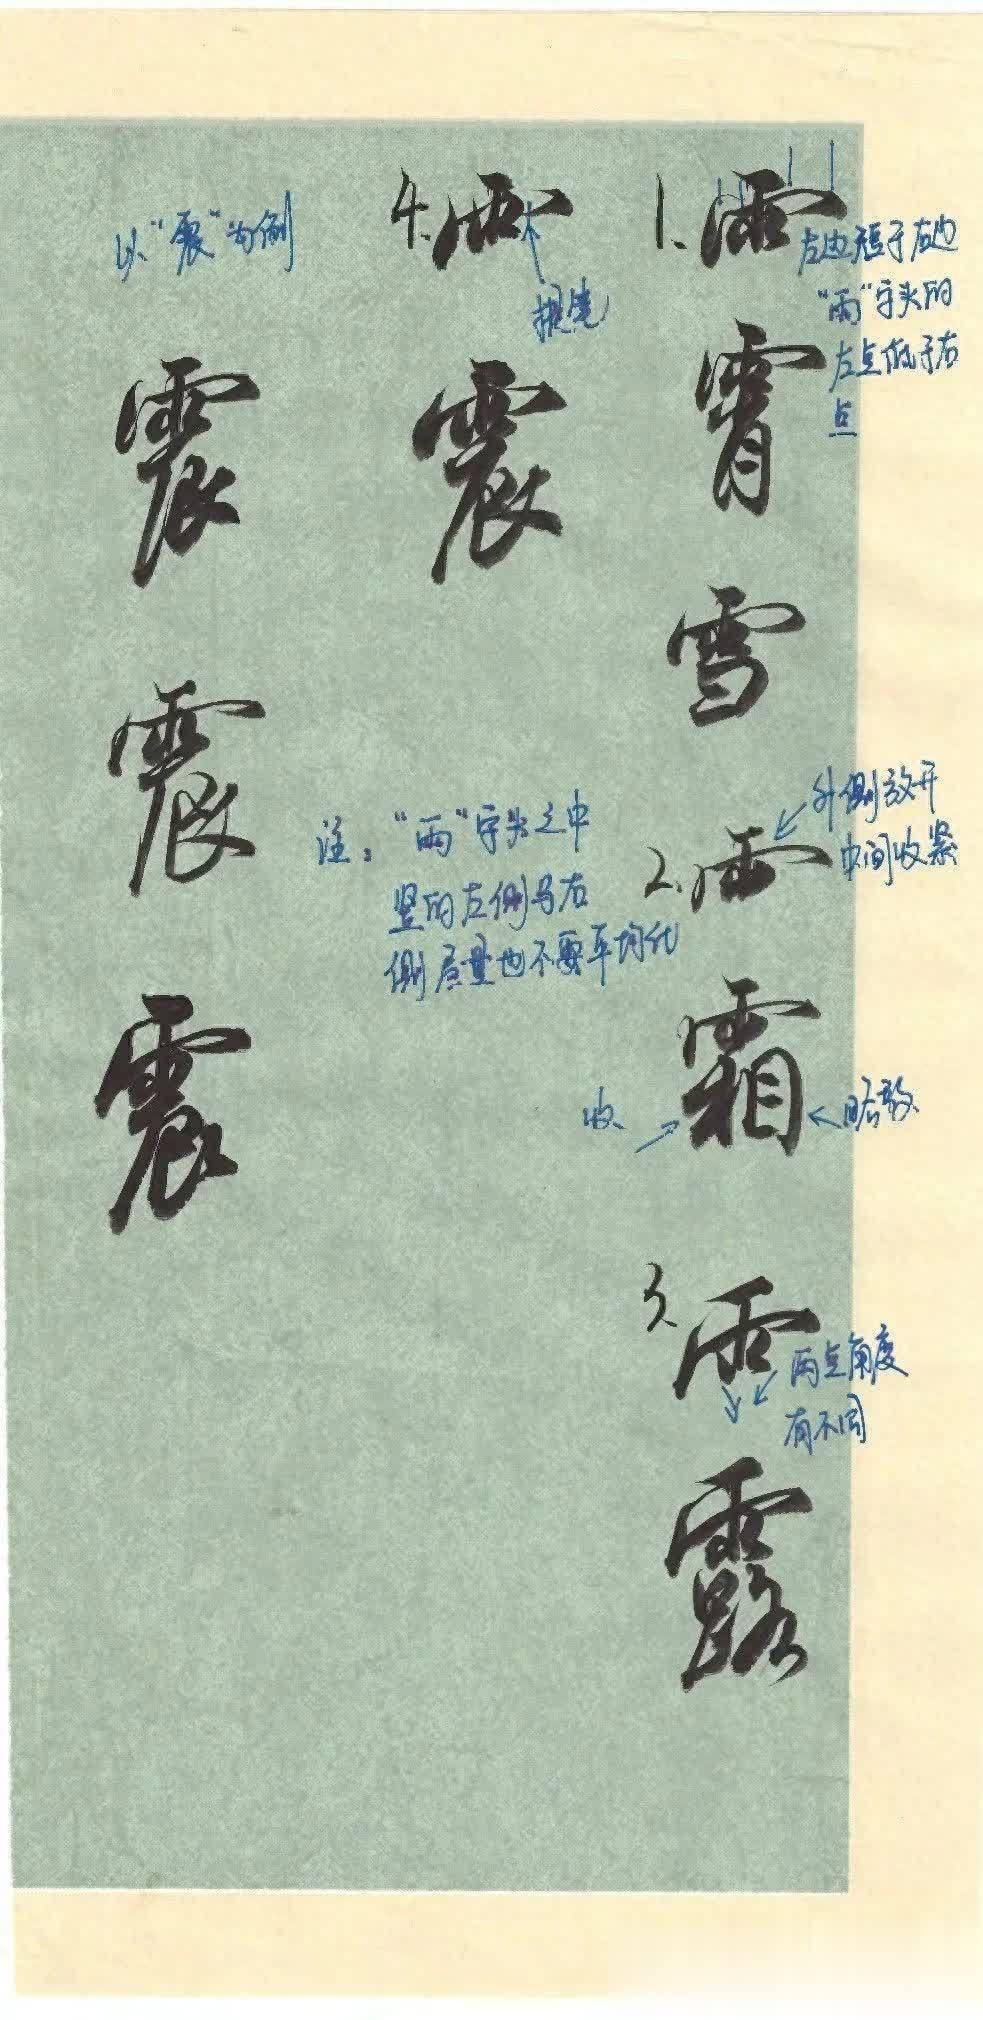 1、雨
左边短于右边
“雨”字头的
左点低于右
点
霄
雪
2、雨
外侧放开
中间收紧
霜
收
略放
3、雨
两点角度
有不同
露
4、雨
提笔
震
注：“雨”字头之中
竖的左侧与右
侧质量也不要平均化
以“震”为例
震
震
震